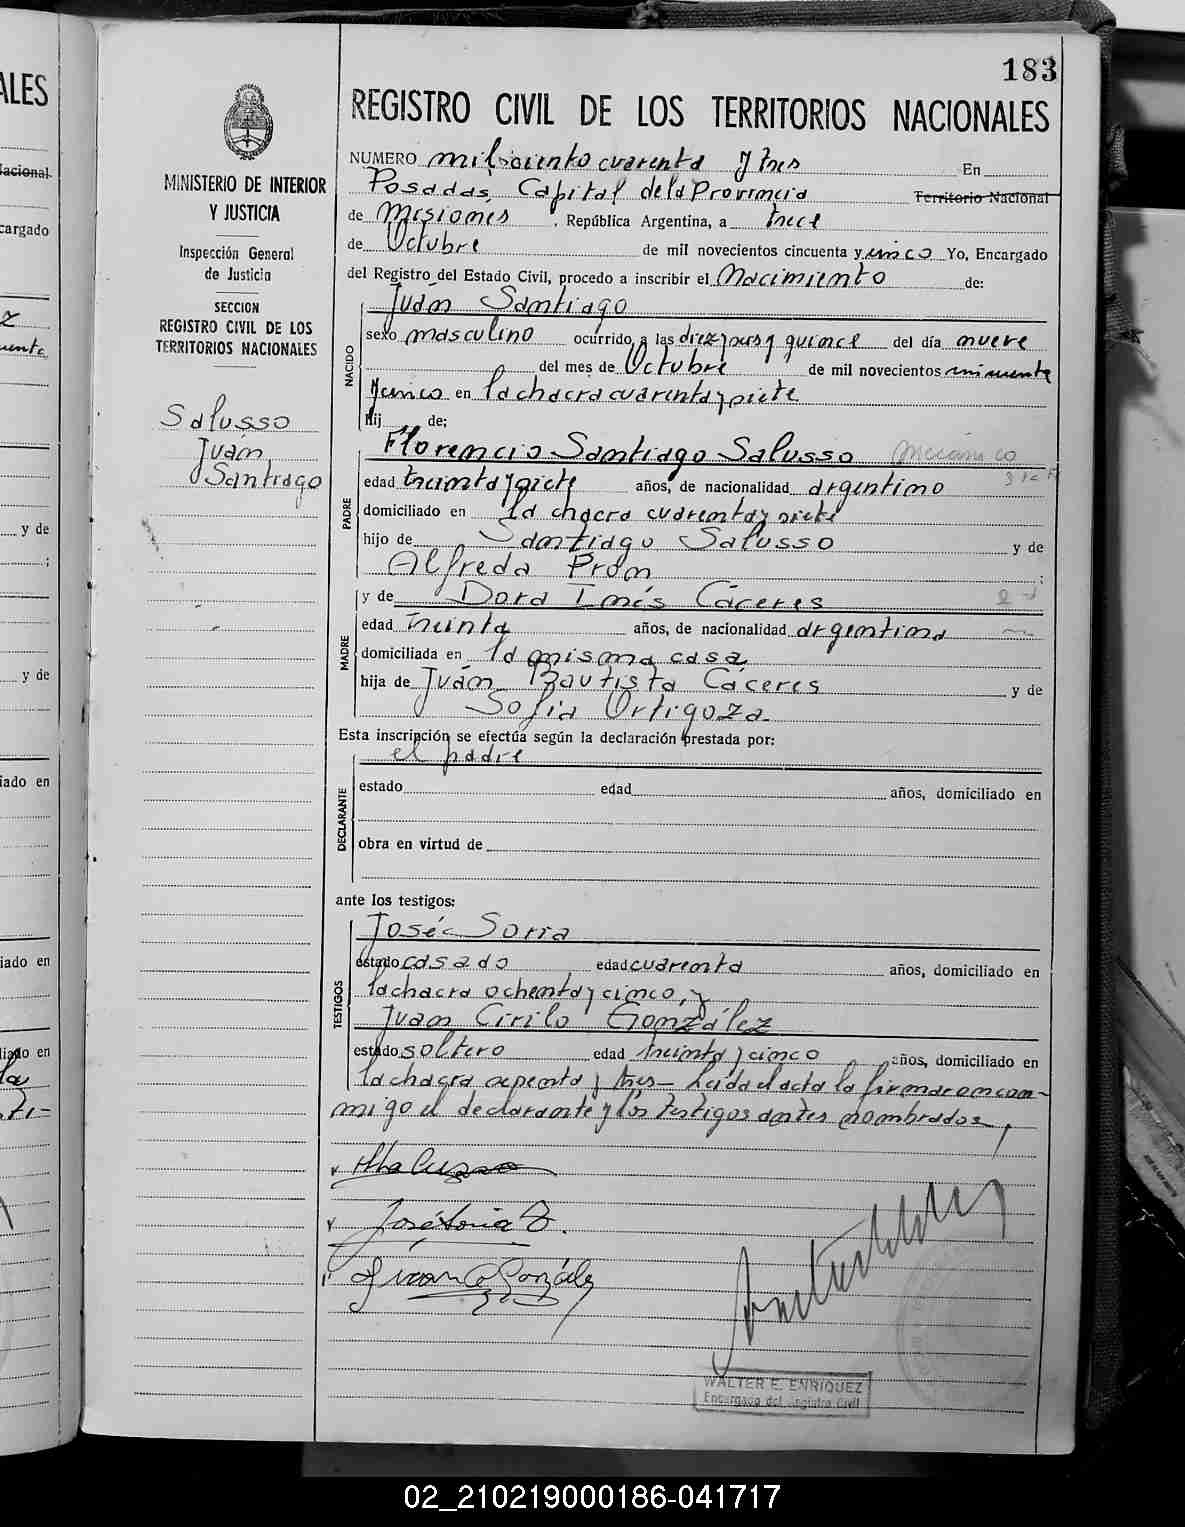 183
REGISTRO CIVIL DE LOS TERRITORIOS NACIONALES
MINISTERIO DE INTERIOR
Y JUSTICIA
Inspección General
de Justicia
SECCION
REGISTRO CIVIL DE LOS
TERRITORIOS NACIONALES
Salusso
Juán
Santiago
NUMERO milciento cuarenta y tres En
Posadas, Capital de la Provincia Territorio Nacional
de Misiones, República Argentina, a trece
de Octubre de mil novecientos cincuenta y unico Yo, Encargado
del Registro del Estado Civil, procedo a inscribir el Nacimiento de:
Juán Santiago
NACIDO
sexo masculino ocurrido a las diez y seis y quince del día nueve
del mes de Octubre de mil novecientos cincuenta
y unico en la chacra cuarenta y siete
Hij de:
Florencio Santiago Salusso
PADRE
edad treinta y siete años, de nacionalidad argentino
domiciliado en la chacra cuarenta y siete
hijo de Santiago Salusso y de
Alfreda Prom ;
y de Dora Inés Cáceres
MADRE
edad treinta años, de nacionalidad argentina
domiciliada en la misma casa
hija de Juán Bautista Cáceres y de
Sofia Ortigoza
Esta inscripción se efectúa según la declaración prestada por:
el padre
DECLARANTE
estado edad años, domiciliado en
obra en virtud de
ante los testigos:
José Soria
TESTIGOS
estado casado edad cuarenta años, domiciliado en
la chacra ochenta y cinco, y
Juan Cirilo González
estado soltero edad treinta y cinco años, domiciliado en
la chacra setenta y tres - Leida el acta la firmaron con-
migo el declarante y los testigos antes nombrados,
José Soria
Juan C González
WALTER E. ENRIQUEZ
Encargado del Registro Civil
ALES
Nacional
cargado
y de
;
y de
iado en
iado en
liado en
02_210219000186-041717